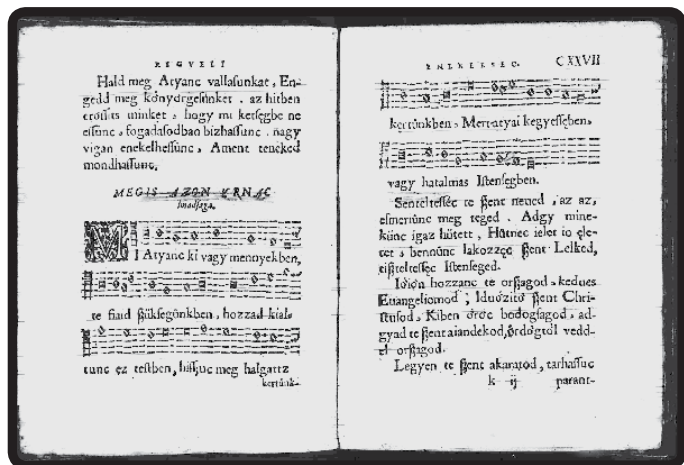 REGVELI
Hald meg Atyanc vallasunkat, En-
gedd meg kónyórgesúnket, az hitben
erossits minket, hogy mi ketsegbe ne
essúnc, fogadasodban bizhassunc, nagy
vigan enekelhessúnc, Ament teneked
mondhassunc.
MEGIS AZON VRNAC
imadsaga.
MI Atyanc ki vagy mennyekben,
te fiaid szúksegúnkben, hozzad kial-
tunc ez testben, hisszuc meg halgattz
kertúnk-
ENEKEKSEC. CXXVII
kertúnkben, Mert atyai kegyessegben,
vagy hatalmas Istensegben.
Senteltesséc te szent neued, az az,
esmeriúnc meg teged. Adgy mine-
kúnc igaz hútett, Hútnec ielet io çle-
tet, bennúnc lakozzęc szent Lelked,
tiszteltessęc Istenseged.
Ióion hozzanc te orszagod, kedues
Euangeliomod, Iduózitó szent Chri-
stusod, Kiben óróc bodogsagod, ad-
gyad te szent aiandekod, órdógtól vedd-
el orszagod.
Legyen te szent akaratod, tarhassuc
k ij parant-